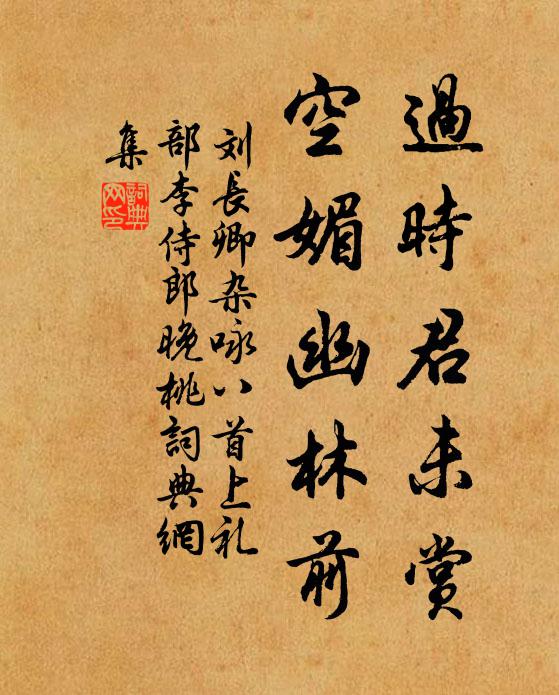 過時君未賞
空媚幽林前
刘長卿杂咏八首上礼
部李侍郎晚桃詞典網
集
詞典
网印